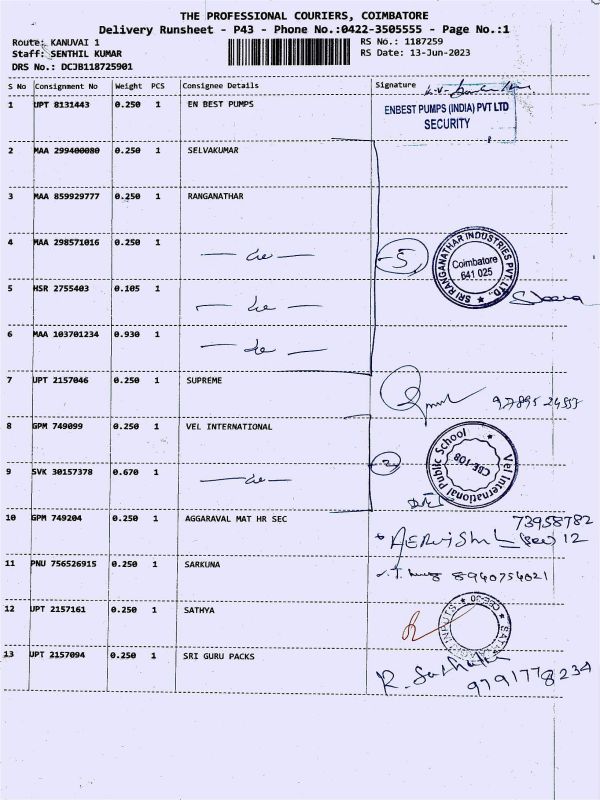 THE PROFESSIONAL COURIERS, COIMBATORE
Delivery Runsheet - P43 - Phone No.:0422-3505555 - Page No.:1
Route: KANUVAI 1
Staff: SENTHIL KUMAR
DRS No.: DCJB118725901
RS No.: 1187259
RS Date: 13-Jun-2023
S No Consignment No Weight PCS Consignee Details Signature
1 UPT 8131443 0.250 1 EN BEST PUMPS
ENBEST PUMPS (INDIA) PVT LTD
SECURITY
2 MAA 299400080 0.250 1 SELVAKUMAR
3 MAA 859929777 0.250 1 RANGANATHAR
4 MAA 298571016 0.250 1 — do —
5
SRI RANGANATHAR INDUSTRIES PVT. LTD.,
Coimbatore
641 025
5 HSR 2755403 0.105 1 — do —
6 MAA 103701234 0.930 1 — do —
7 UPT 2157046 0.250 1 SUPREME
8 GPM 749099 0.250 1 VEL INTERNATIONAL
Vel International Public School
CBE-108
9 SVK 30157378 0.670 1 — do —
2
10 GPM 749204 0.250 1 AGGARAVAL MAT HR SEC
73958782
12
11 PNU 756526915 0.250 1 SARKUNA
8940754021
12 UPT 2157161 0.250 1 SATHYA
13 UPT 2157094 0.250 1 SRI GURU PACKS
9791778234